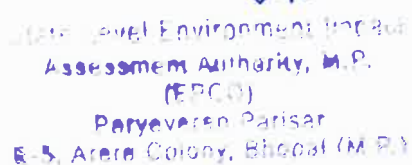 Level Environment
Assessment Authority, M.P.
(EPCO)
Paryavaran Parisar
E-5, Arera Colony, Bhopal (M.P.)